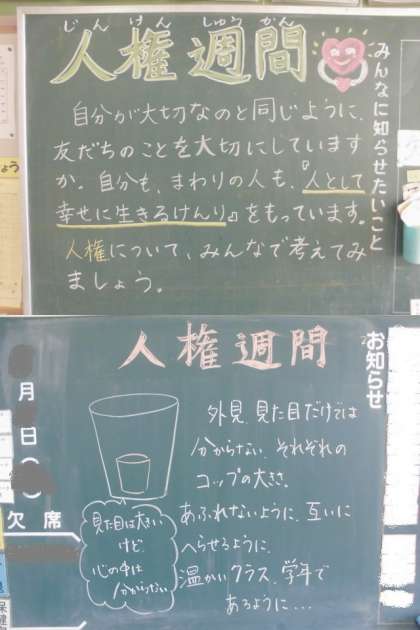 じんけんしゅうかん
人権週間
みんなに知らせたいこと
自分が大切なのと同じように、
友だちのことを大切にしています
か。自分も、まわりの人も、『人として
幸せに生きるけんり』をもっています。
人権について、みんなで考えてみ
ましょう。
人権週間
お知らせ
外見、見た目だけでは
分からない、それぞれの
コップの大きさ。
あふれないように、互いに
へらせるように、
温かいクラス、学年で
あるように…
見た目は大きい
けど、
心の中は
分からない
月
日(
)
欠席
保健